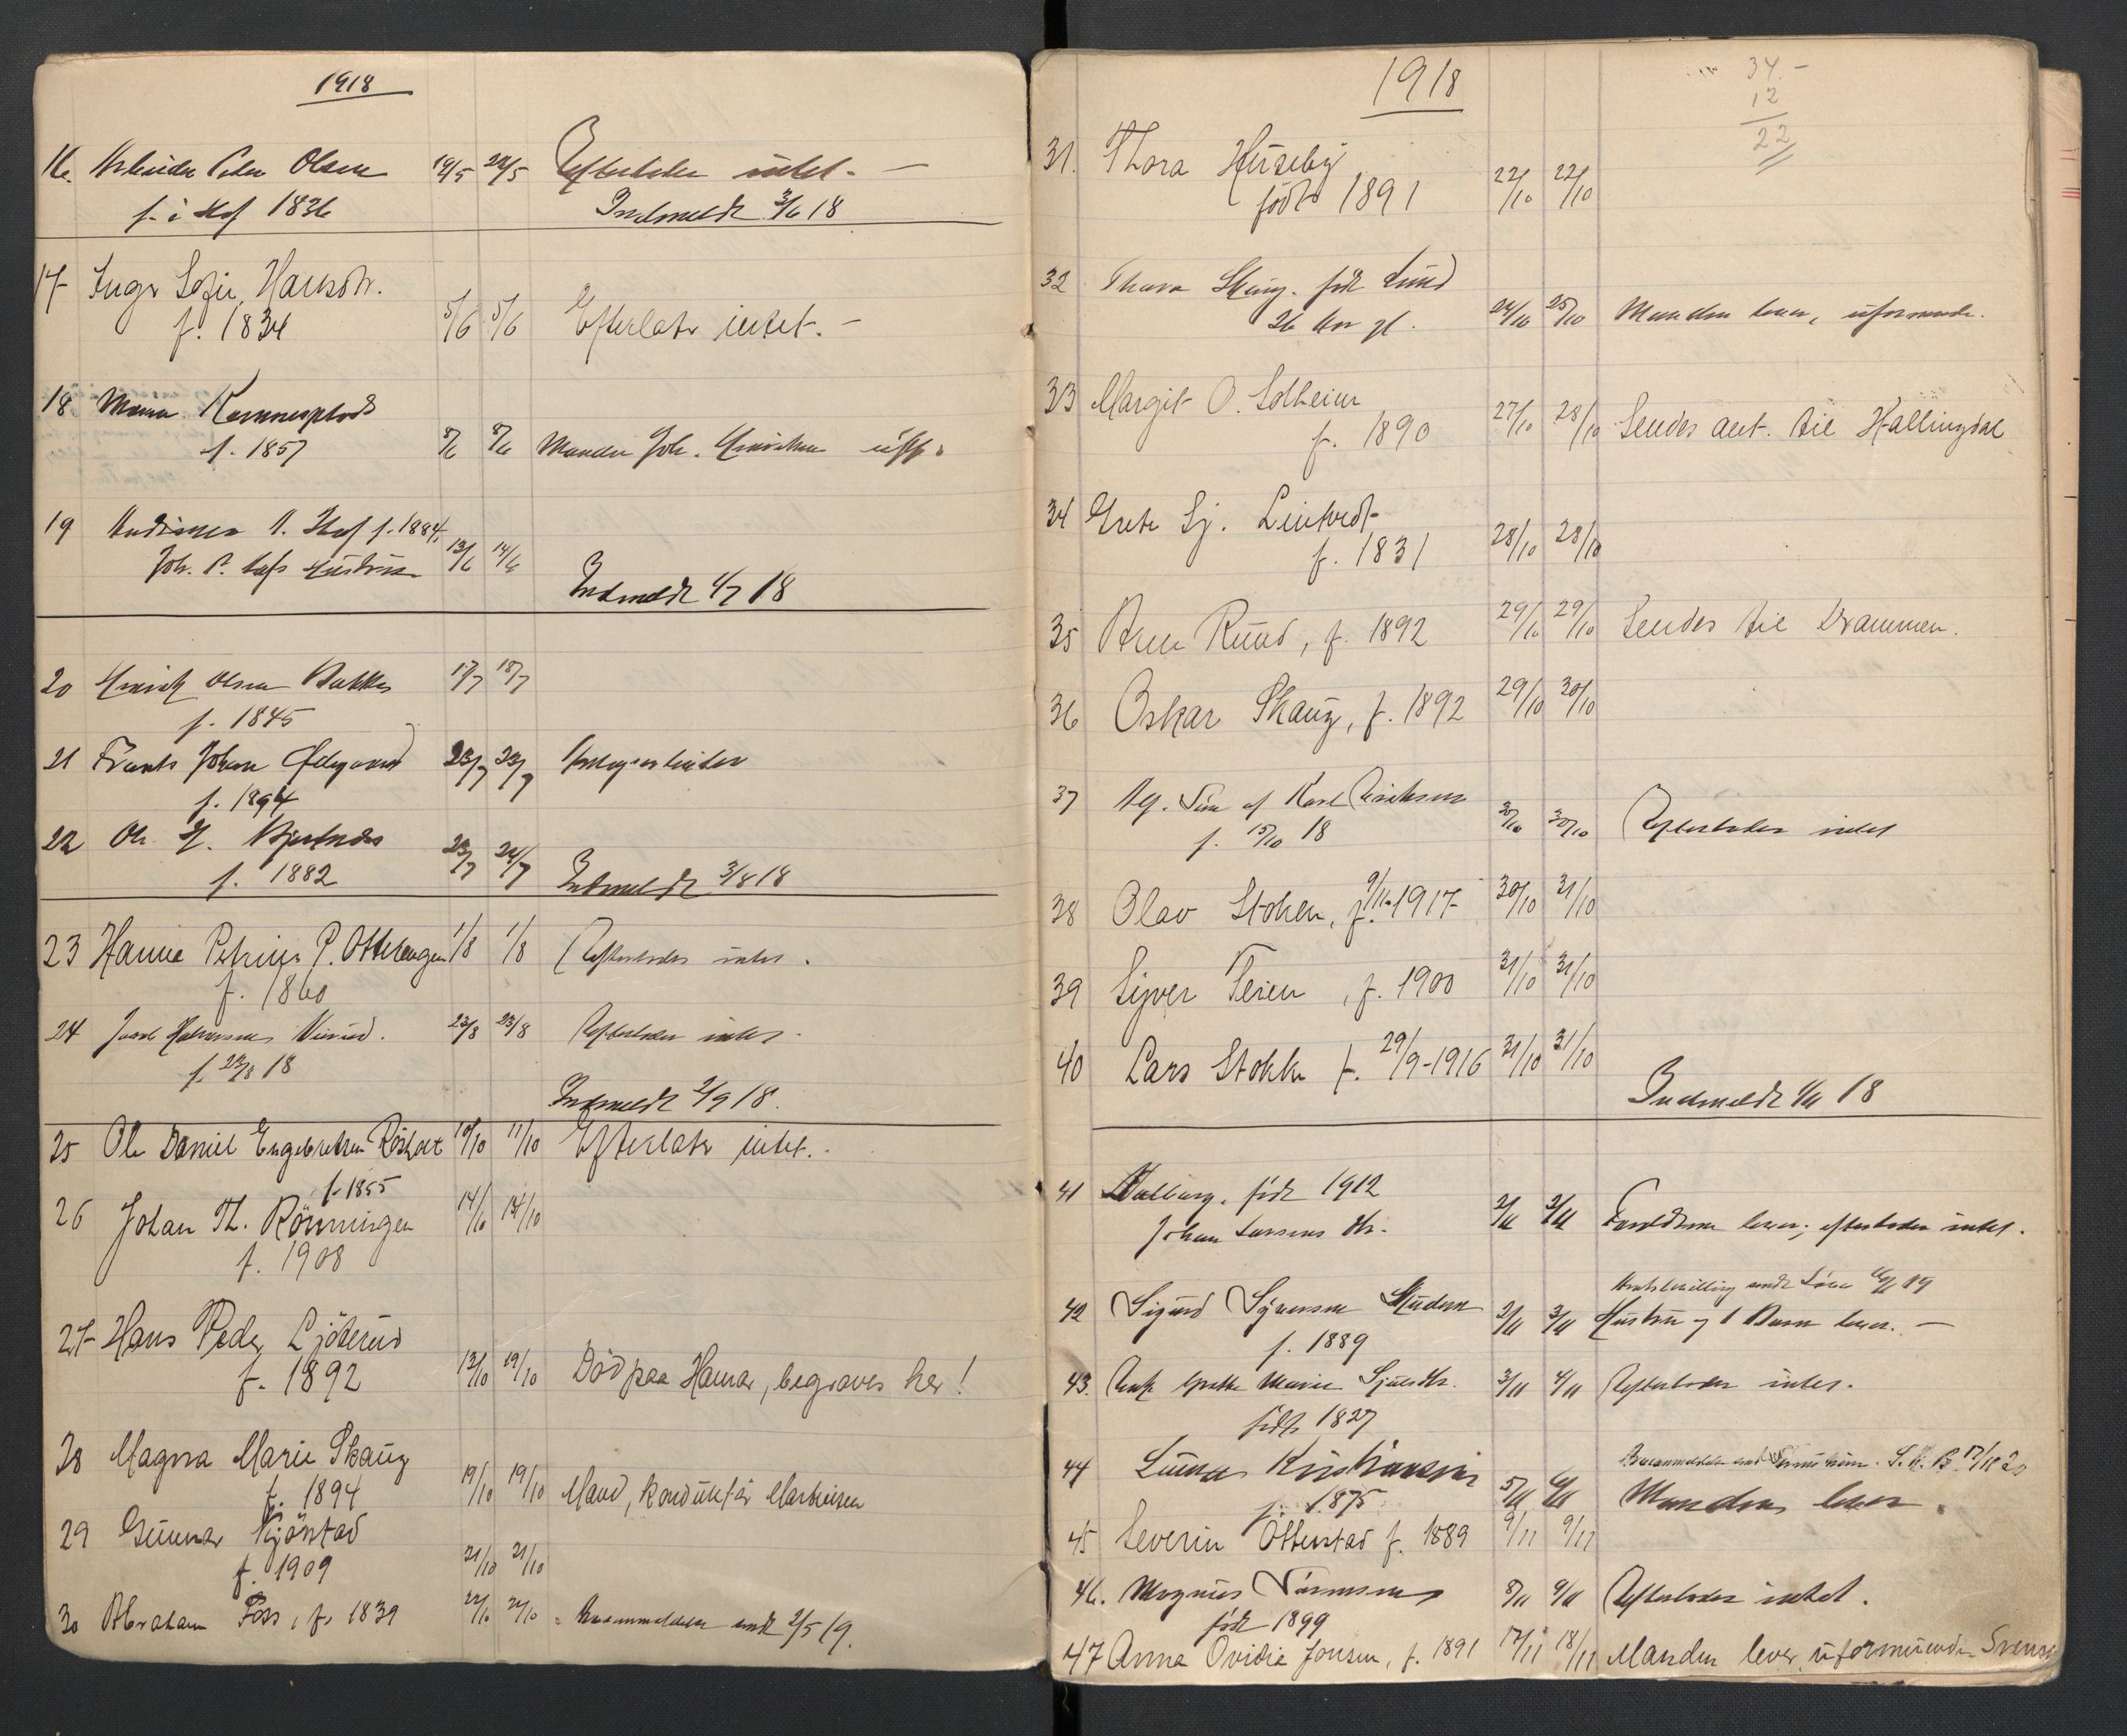 1918
16. Arbeider Peder Olsen 19/5 22/5 Efterlader intet. —
f. i Hof 1836 Indmeldt 3/6 18
17 Inger Sofie Hansdtr.
f. 1834 5/6 5/6 Efterlater intet. —
18 Maren
f. 1857 8/6 8/6 Manden Joh. Henriksen
19 Andrine A. Hof f. 1884,
Joh. P. Hofs Hustru 13/6 14/6
Indmeldt 1/7 18
20 Henrik Olsen Bakken 17/7 18/7
f. 1845
21 Frants Johan Ødegaard 23/7 23/7 Anlægsarbeider
f. 1894
22 Ole H. 23/7 24/7
f. 1882 Indmeldt 3/8 18
23 Hanne Petrine P. Ottelengen 1/8 1/8 Efterlader intet.
f. 1860
24 Halvorsen 23/8 23/8 Efterlader intet.
f. 23/8 18
Indmeldt 2/9 18.
25 Ole Daniel Engebretsen Røsholt 10/10 11/10 Efterlater intet.
f. 1855
26 Johan Th. Rönningen 14/10 14/10
f. 1908
27 Hans Peder Ljöterud
f. 1892 13/10 19/10 Död paa Hamar, begraves her!
28 Magna Marie Skaug
f. 1894 19/10 19/10 Mand, konduktör Martinsen
29 Gunnar Kjöstad
f. 1909 21/10 21/10
30 Abraham Foss, f. 1839 22/10 22/10 Boanmeldelse sendt 2/5 19.
1918
34.–
12
22
31. Thora Huseby
född 1891 22/10 22/10
32 Thora Skaug. födt Lund
26 Aar gl. 24/10 25/10 Manden lever, uformuende.
33 Margit O. Solheim
f. 1890 27/10 28/10 Sendes ant. til Hallingdal
34 Grete Sj. Lintvedt
f. 1831 28/10 28/10
35 Arne Ruud, f. 1892 29/10 29/10 Sendes til Drammen.
36 Oskar Skaug, f. 1892 29/10 30/10
37 Ug. Søn af Karl Eriksen
f. 15/10 18 30/10 30/10 Efterlader intet
38 Olav Stoken, f. 9/11-1917 30/10 31/10
39 Sijver Teien, f. 1900 31/10 31/10
40 Lars Stokke f. 29/9-1916 31/10 31/10
Indmeldt 1/11 18
41 Valborg, födt 1912
Johan Larsens dtr. 2/11 2/11 Forældrene lever; efterlader intet.
42 Sigurd Syversen 2/11 3/11 Hustru og 1 Barn lever. —
f. 1889
43. Enke Grethe Marie Sjulsdtr. 3/11 4/11 Efterlader intet.
födt 1827
44 Lovise Kristiansen
f. 1875 5/11 6/11 Manden lever.
45 Severin Ottestad f. 1889 9/11 9/11
46. Magnus 8/11 9/11 Efterlader intet.
födt 1899
47 Anna Ovidia Jonsen, f. 1891 17/11 18/11 Manden lever, uformuende Svensk